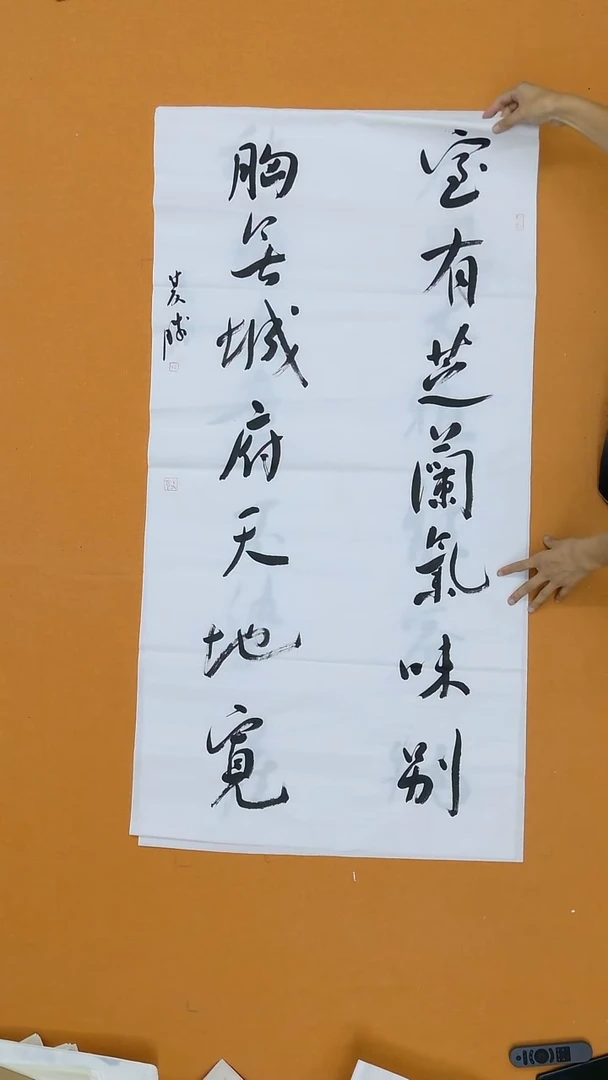 室有芝蘭氣味别
胸无城府天地寬